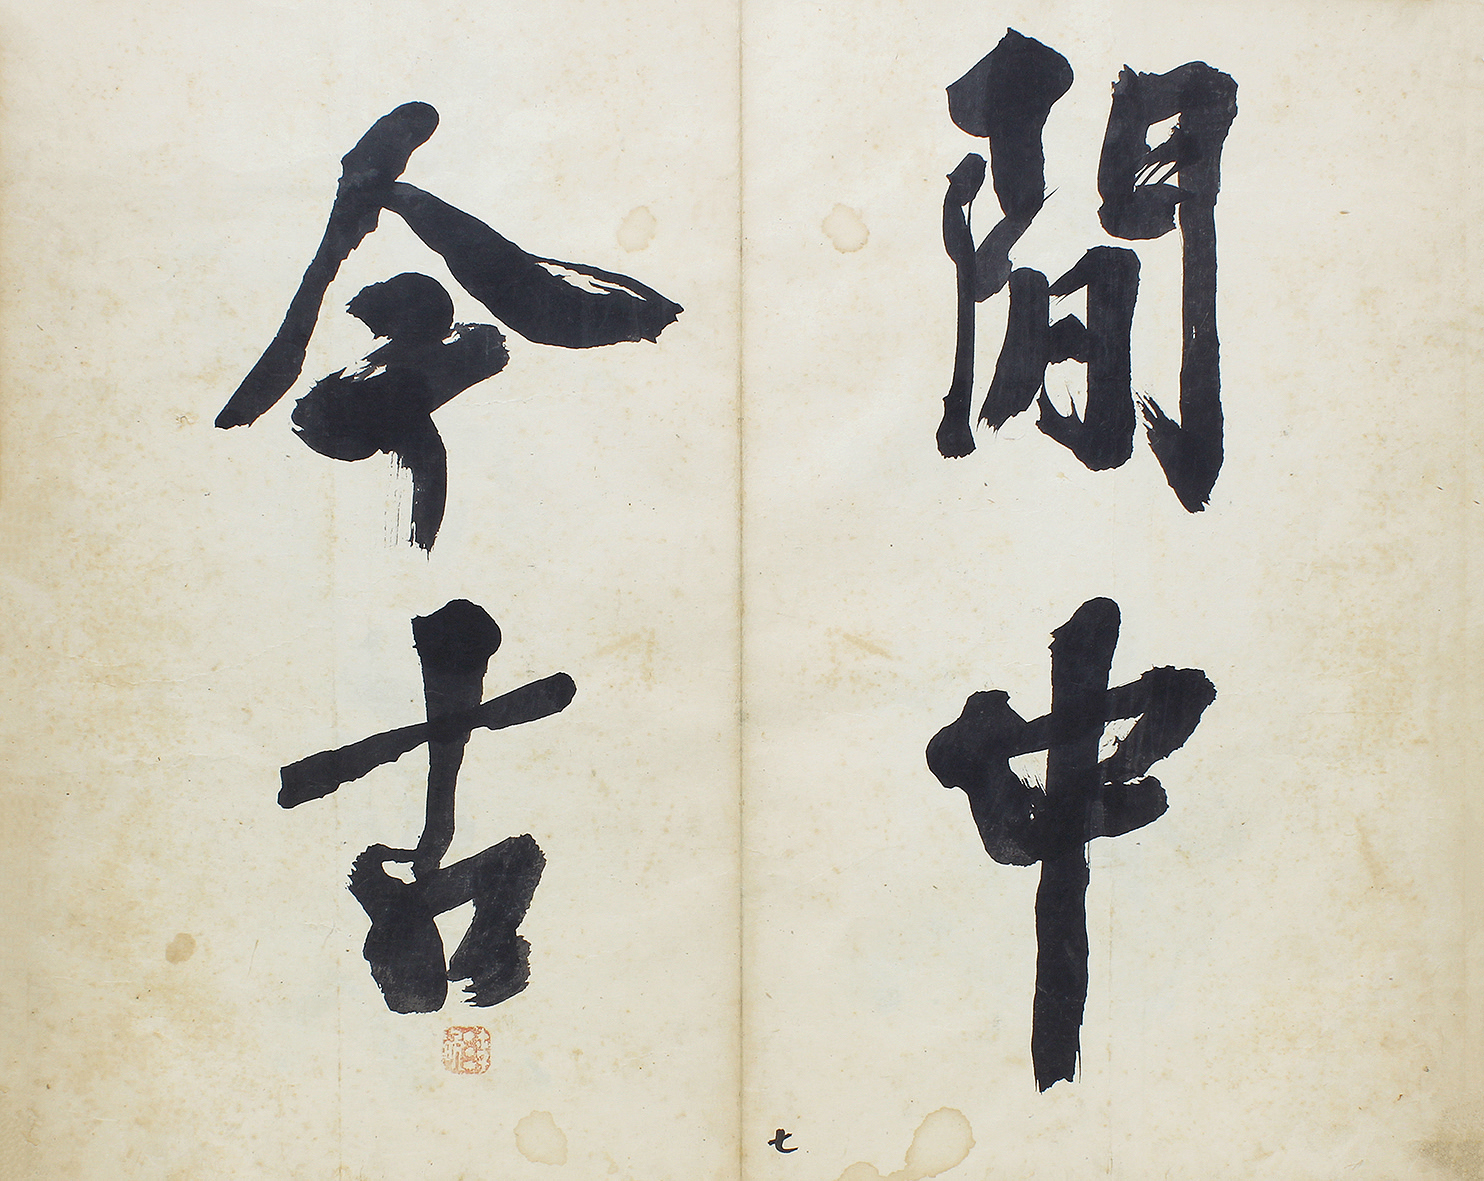 閒中
今古
七